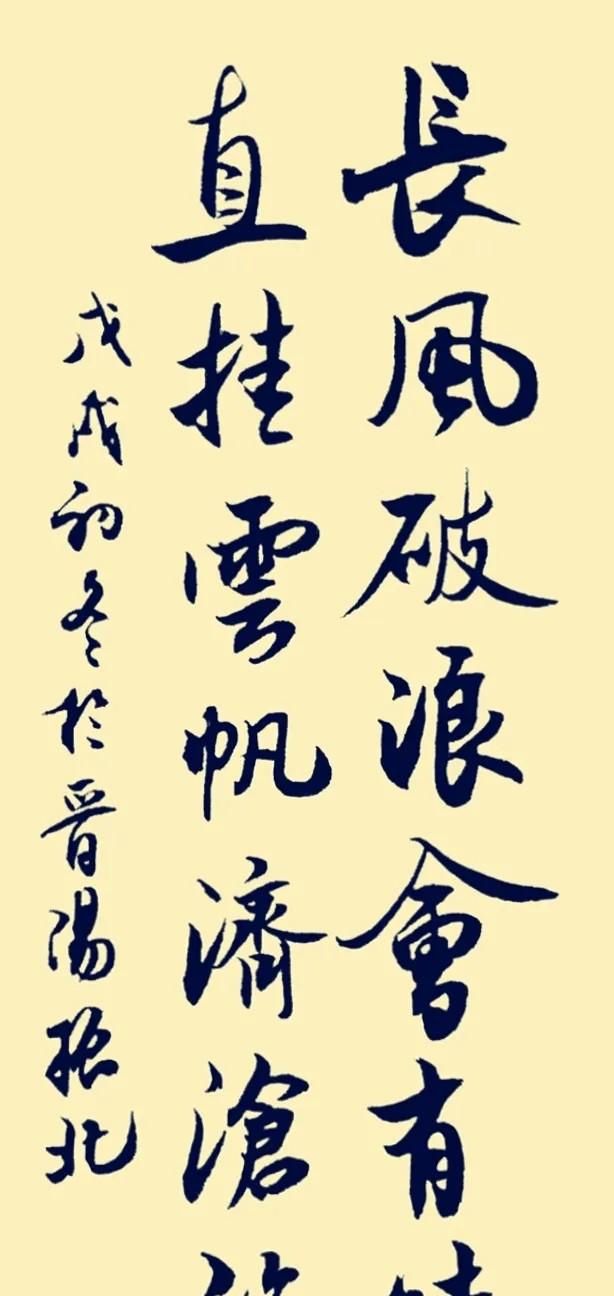 長風破浪會有
直挂雲帆濟滄
戊戌初冬於晋陽振北